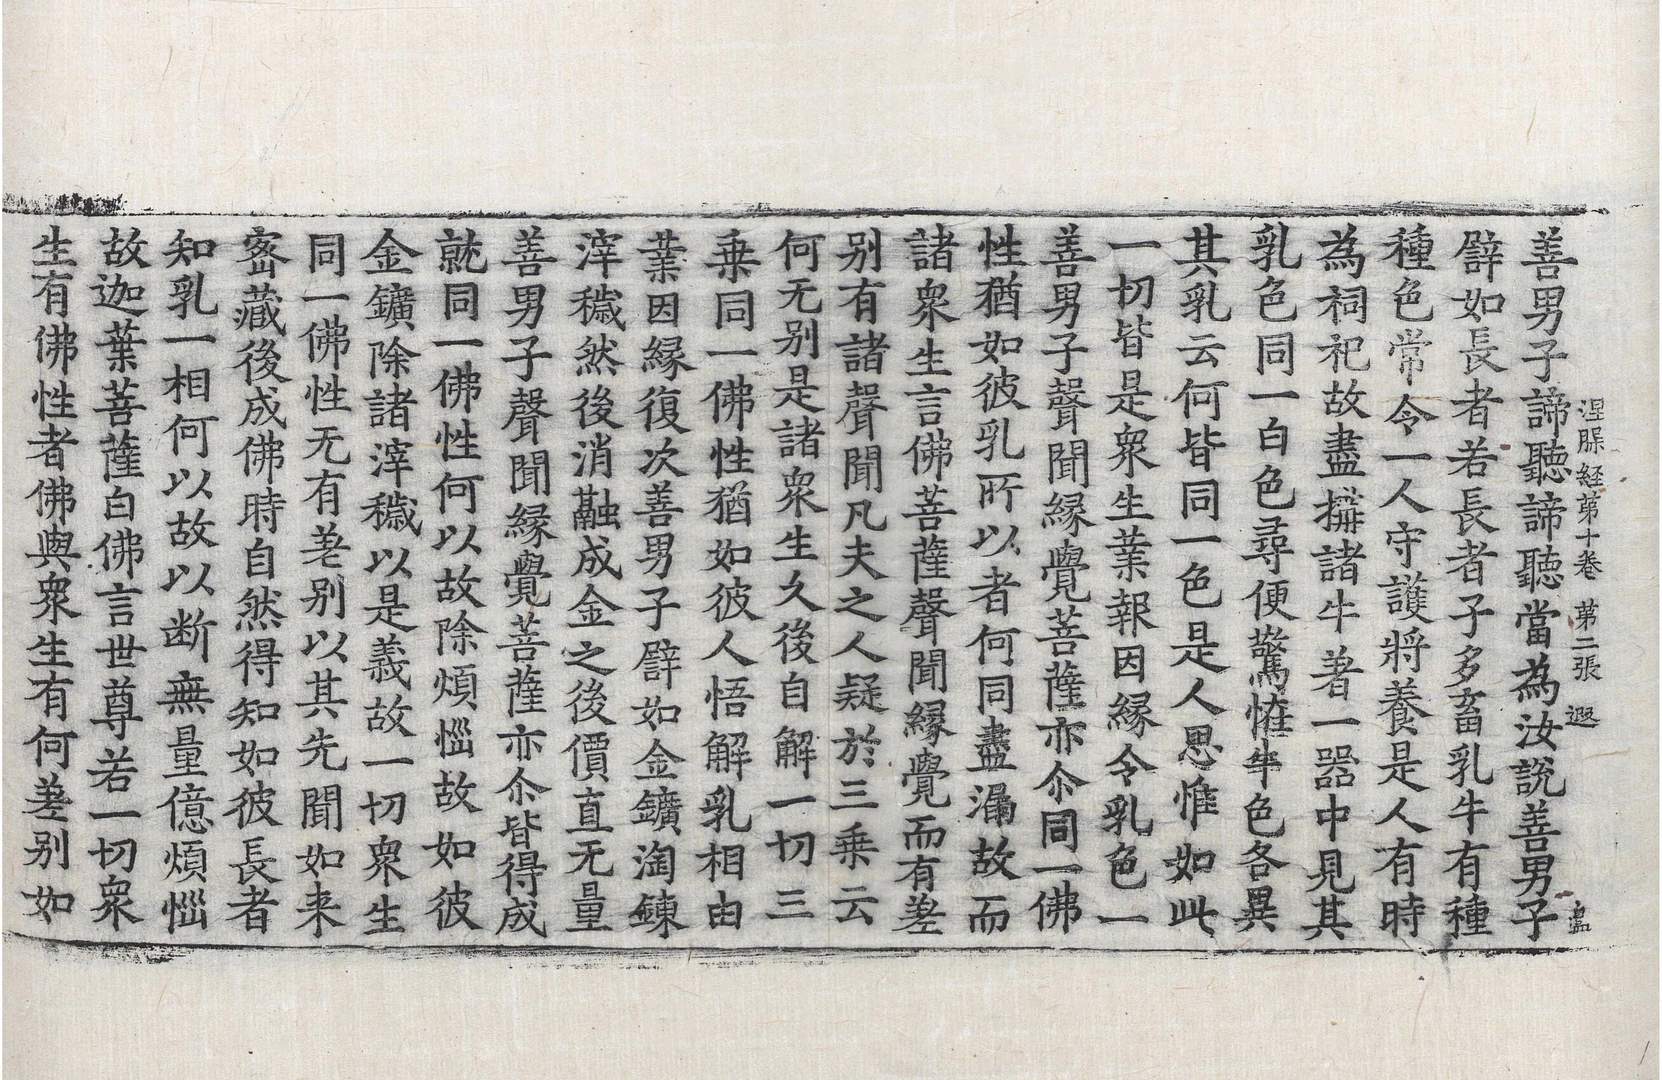 涅脲経苐十卷 苐二張 遐 盖
善男子諦聽諦聽當為汝說善男子
譬如長者若長者子多畜乳牛有種
種色常令一人守護將養是人有時
為祠祀故盡搆諸牛著一器中見其
乳色同一白色尋便驚恠牛色各異
其乳云何皆同一色是人思惟如此
一切皆是衆生業報因緣令乳色一
善男子聲聞縁覺菩薩亦尒同一佛
性猶如彼乳所以者何同盡漏故而
諸衆生言佛菩薩聲聞縁覺而有差
别有諸聲聞凡夫之人疑於三乗云
何无别是諸衆生久後自解一切三
乗同一佛性猶如彼人悟解乳相由
業因縁復次善男子譬如金鑛淘鍊
滓穢然後消融成金之後價直无量
善男子聲聞縁覺菩薩亦尒皆得成
就同一佛性何以故除煩惱故如彼
金鑛除諸滓穢以是義故一切衆生
同一佛性无有差别以其先聞如来
宻藏後成佛時自然得知如彼長者
知乳一相何以故以断無量億煩惱
故迦葉菩薩白佛言世尊若一切衆
生有佛性者佛與衆生有何差别如